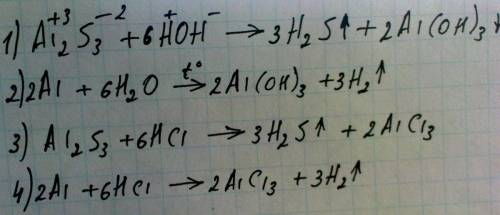 1) Al₂⁺³S₃⁻² + 6H⁺OH⁻ → 3H₂S↑ + 2Al(OH)₃↓
2) 2Al + 6H₂O →t° 2Al(OH)₃ + 3H₂↑
3) Al₂S₃ + 6HCl → 3H₂S↑ + 2AlCl₃
4) 2Al + 6HCl → 2AlCl₃ + 3H₂↑